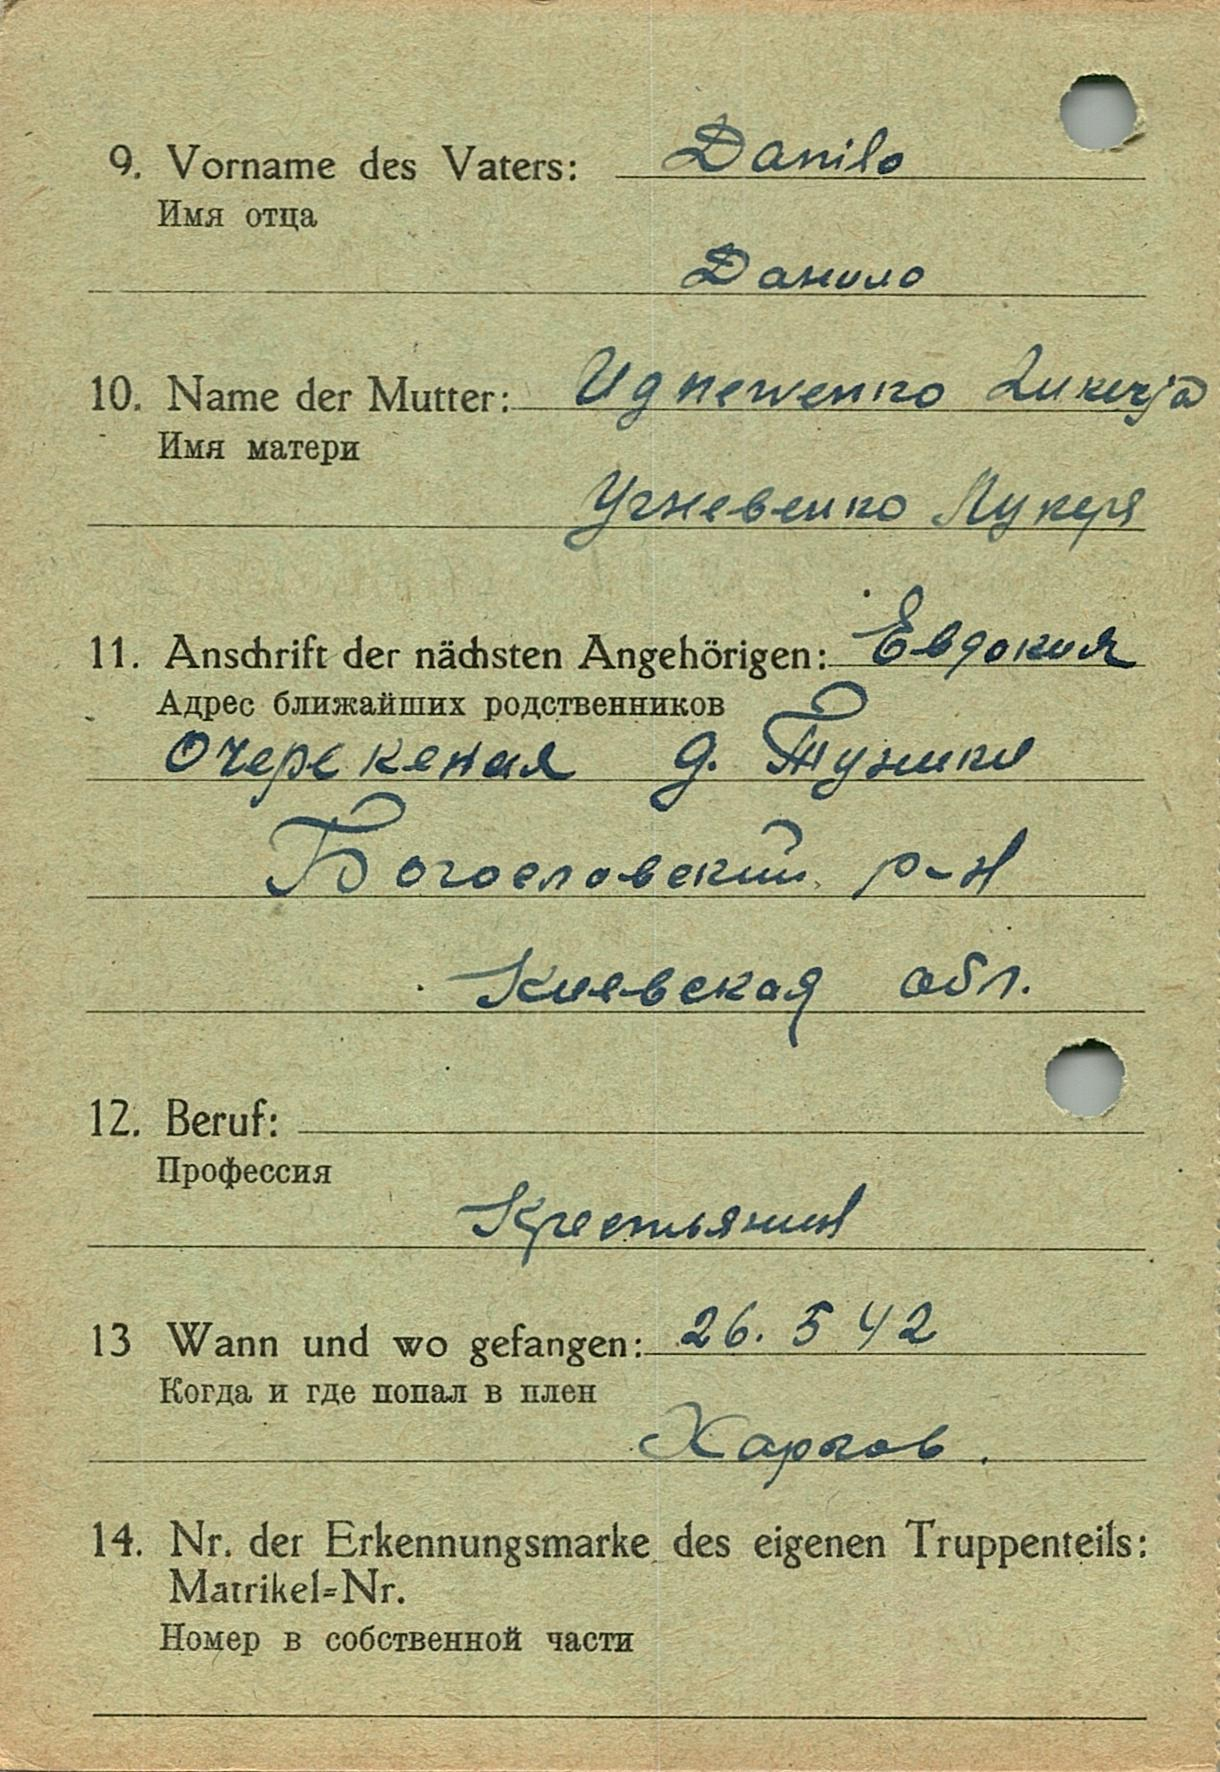 9. Vorname des Vaters: Danilo
Имя отца
Данило
10. Name der Mutter: Ugnewenko Lukerja
Имя матери
Угневенко Лукеря
11. Anschrift der nächsten Angehörigen: Евдокия
Адрес ближайших родственников
д.
Богословский р-н
Киевская обл.
12. Beruf:
Профессия
Крестьянин
13 Wann und wo gefangen: 26. 5 42
Когда и где попал в плен
Харьков.
14. Nr. der Erkennungsmarke des eigenen Truppenteils:
Matrikel=Nr.
Номер в собственной части